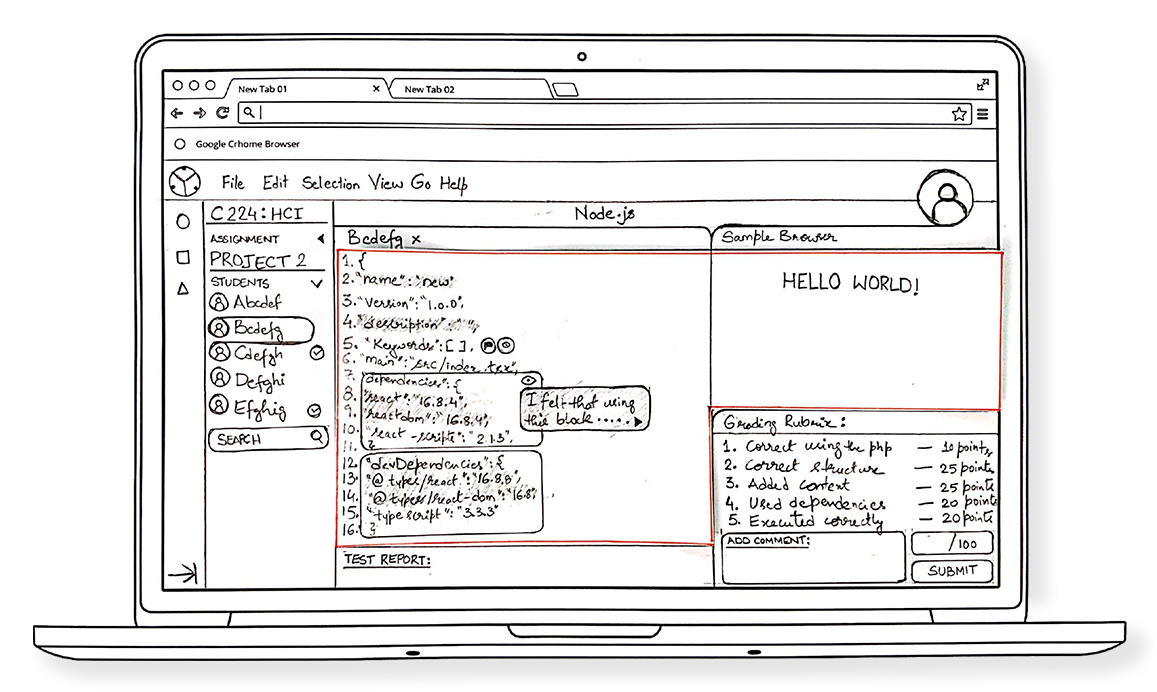 New Tab 01 × New Tab 02
Google Crhome Browser
File Edit Selection View Go Help
C224: HCI
ASSIGNMENT
PROJECT 2
STUDENTS
Abcdef
Bcdefg
Cdefgh
Defghi
Efghig
SEARCH
Node.js
Bcdefg ×
1. {
2. "name": "new"
3. "version": "1.0.0",
4. "description": " ",
5. "Keywords": [ ],
6. "main": "src/index.tsx",
7. "dependencies": {
8. "react": "16.8.4",
9. "reactdom": "16.8.4",
10. "react-scripts": "2.1.3",
11. }
12. "devDependencies": {
13. "@types/react": "16.8.8",
14. "@types/react-dom": "16.8
15. "typescript": "3.3.3"
16. }
I felt that using
this block .....
TEST REPORT:
Sample Browser
HELLO WORLD!
Grading Rubrix:
1. Correct using the php — 10 points,
2. Correct structure — 25 points
3. Added content — 25 points
4. Used dependencies — 20 points
5. Executed correctly — 20 points
ADD COMMENT:
/100
SUBMIT